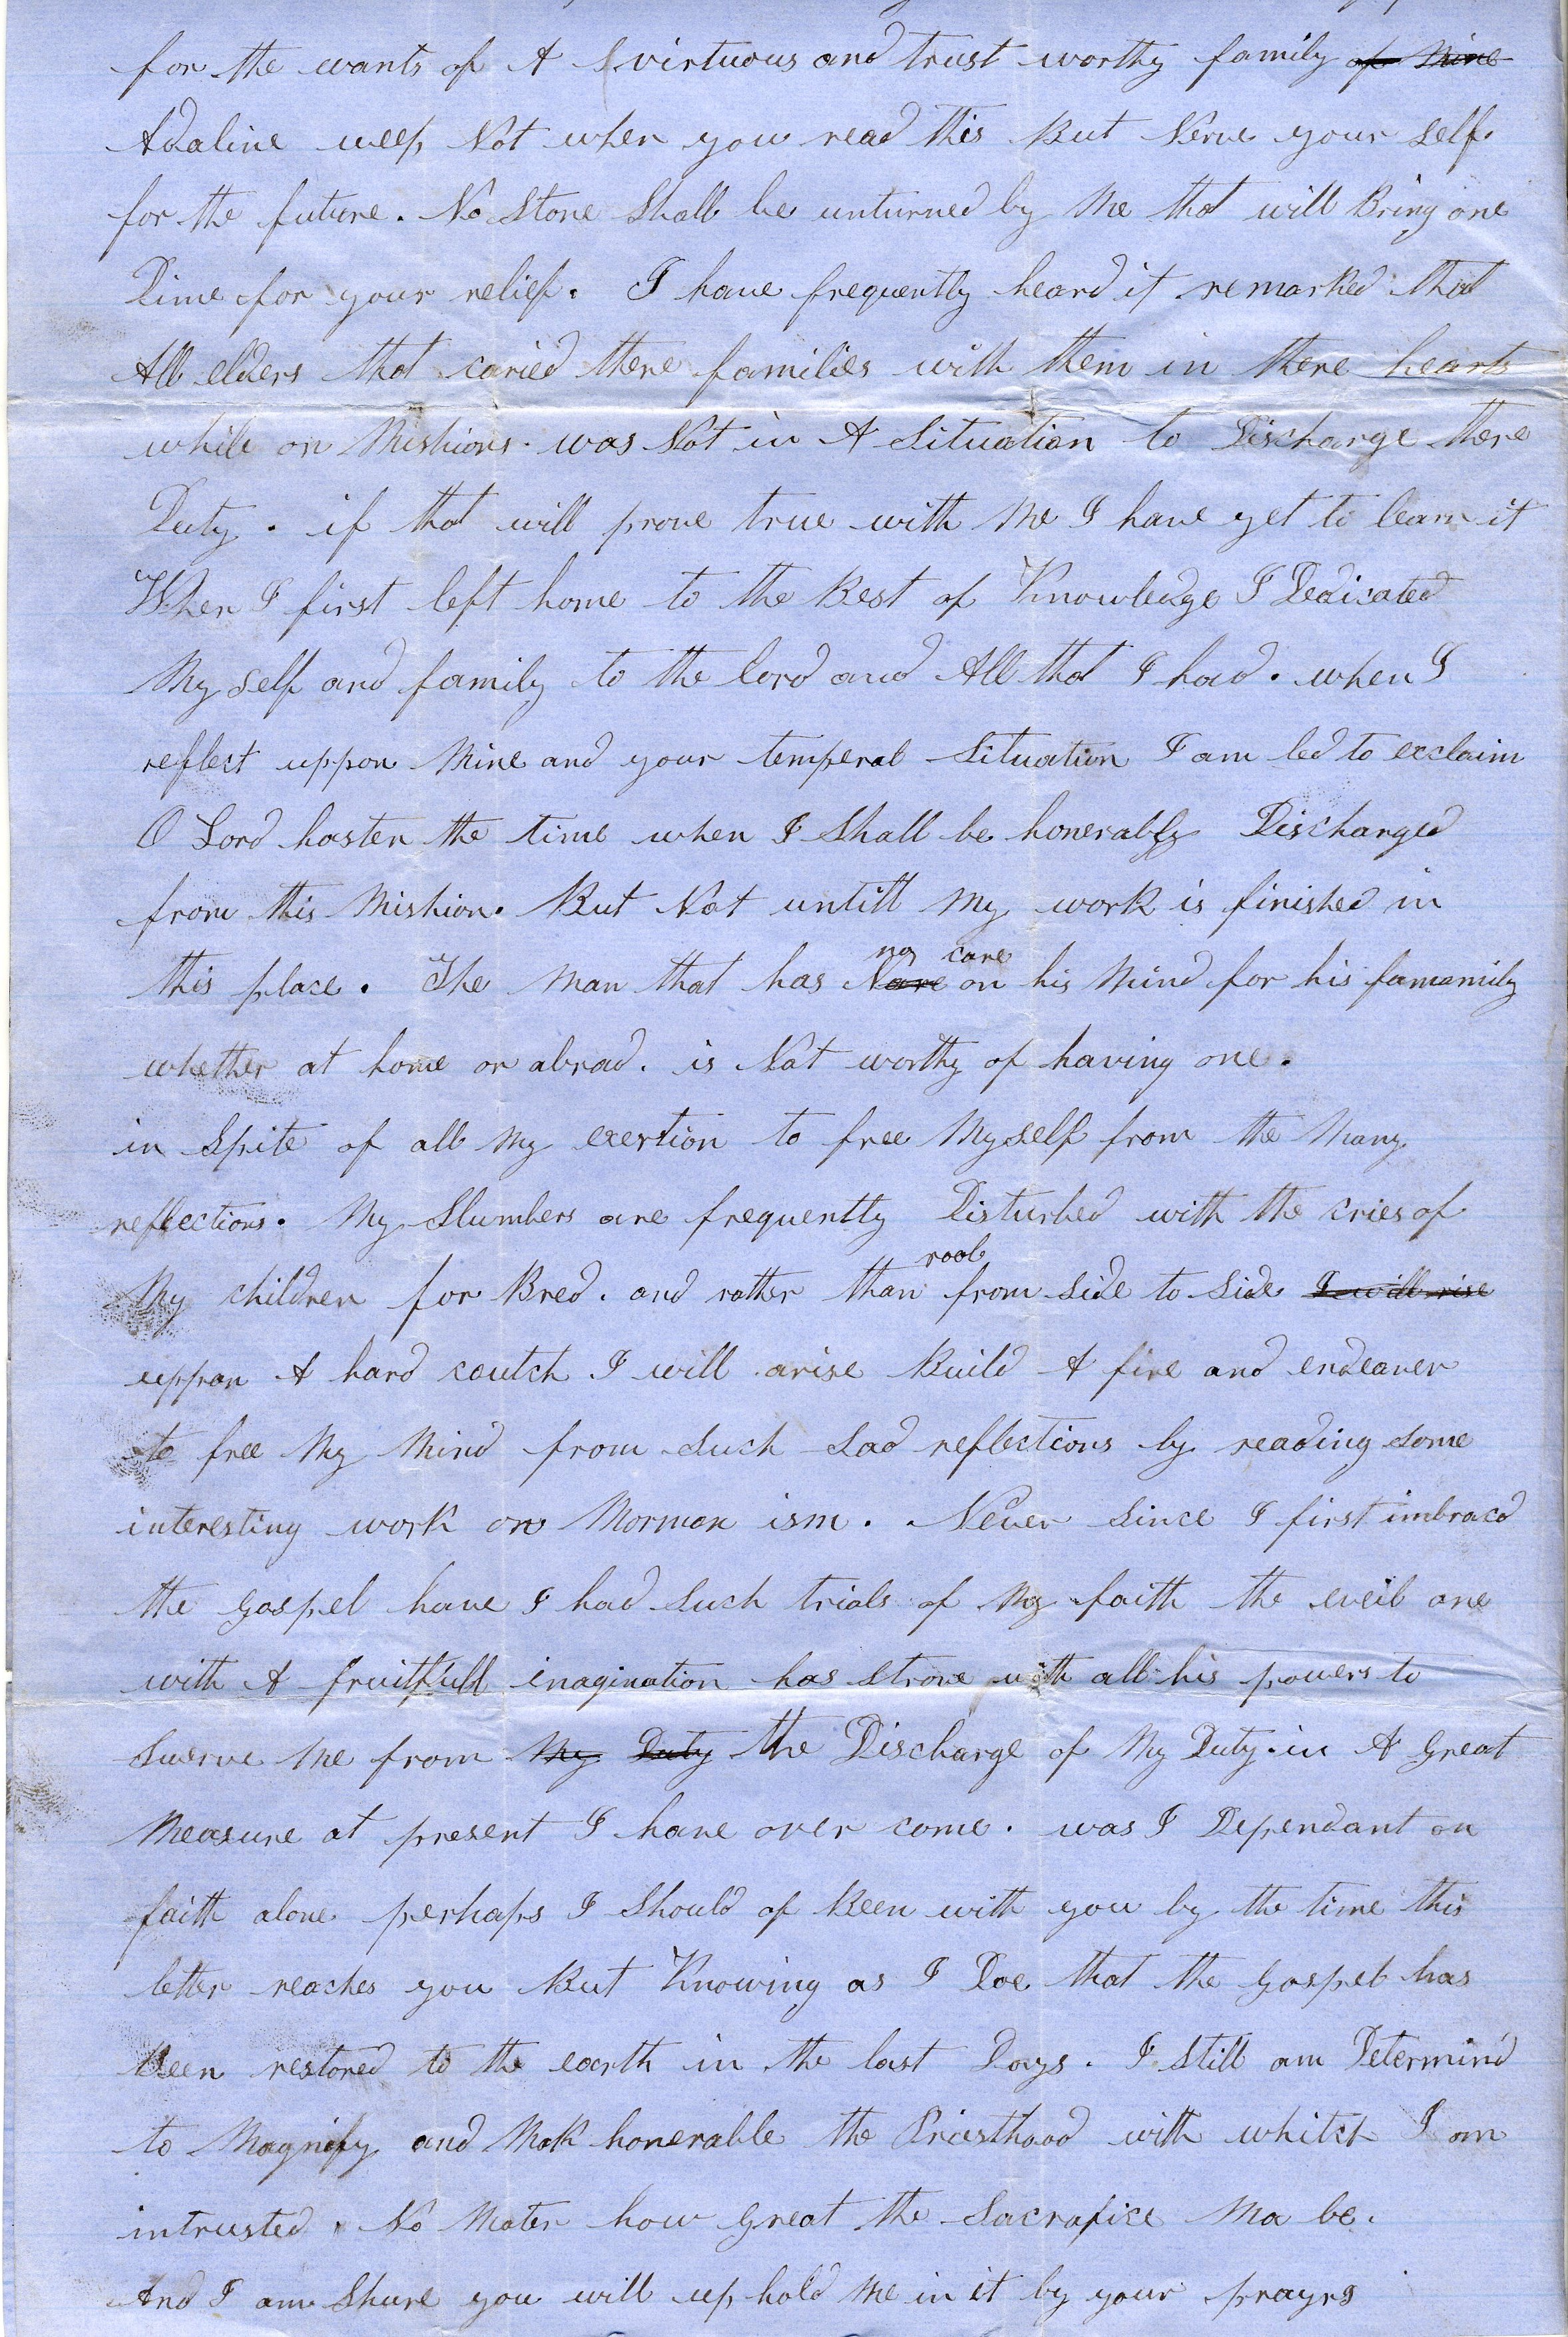 for the wants of A virtuous and trust worthy family of Mine
Adaline weep Not when you read this But Nerve your self
for the future. No Stone Shall be unturned by Me that will Bring one
Dime for your relief. I have frequently heard it remarked that
All elders that caried there families with them in there hearts
while on Mishions. was Not in A Situation to Discharge there
Duty. if that will prove true with Me I have yet to learn it
When I first left home to the Best of Knowledge I Dedicated
My self and family to the lord and All that I had. when I
reflect uppon Mine and your temperal Situation I am led to exclaim
O Lord hasten the time when I Shall be honerably Discharged
from this Mishion. But Not untill My work is finished in
no care
this place. The Man that has Nare on his Mind for his famamily
whether at home or abrad. is Not worthy of having one.
in Spite of all My exertion to free Myself from the Many
reflections. My Slumbers are frequently Disturbed with the cries of
rool
My children for Bred. and rather than from side to side I will rise
uppon A hard coutch I will arise Build A fire and endeaver
to free My Mind from Such Sad reflections by reading some
interesting work on Mormon ism. Never Since I first imbracd
the gospel have I had Such trials of My faith the eveil one
with A fruitfull inagination has Strove with all his powers to
Swerve Me from My Duty the Discharge of My Duty. in A great
Measure at present I have over come. was I Dependant on
faith alone perhaps I Should of Been with you by the time this
letter reaches you But Knowing as I Doe that the gospel has
Been restored to the earth in the last Days. I Still am Determind
to Magnify and Mak honerable the Priesthood with whitch I am
intrusted. No Mater how great the Sacrafice Ma be.
And I am Shure you will up hold Me in it by your prayrs